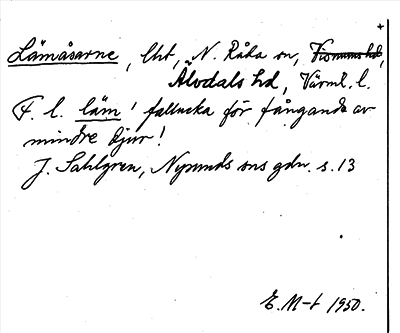 +
Lämåsarne, lht, N. Råda sn, Visnums hd,
Älvdals hd, Värml. l.
F. l. läm 'fallucka för fångande av
mindre djur'
J. Sahlgren, Nysunds sns gdn. s. 13
E. M-t 1950.